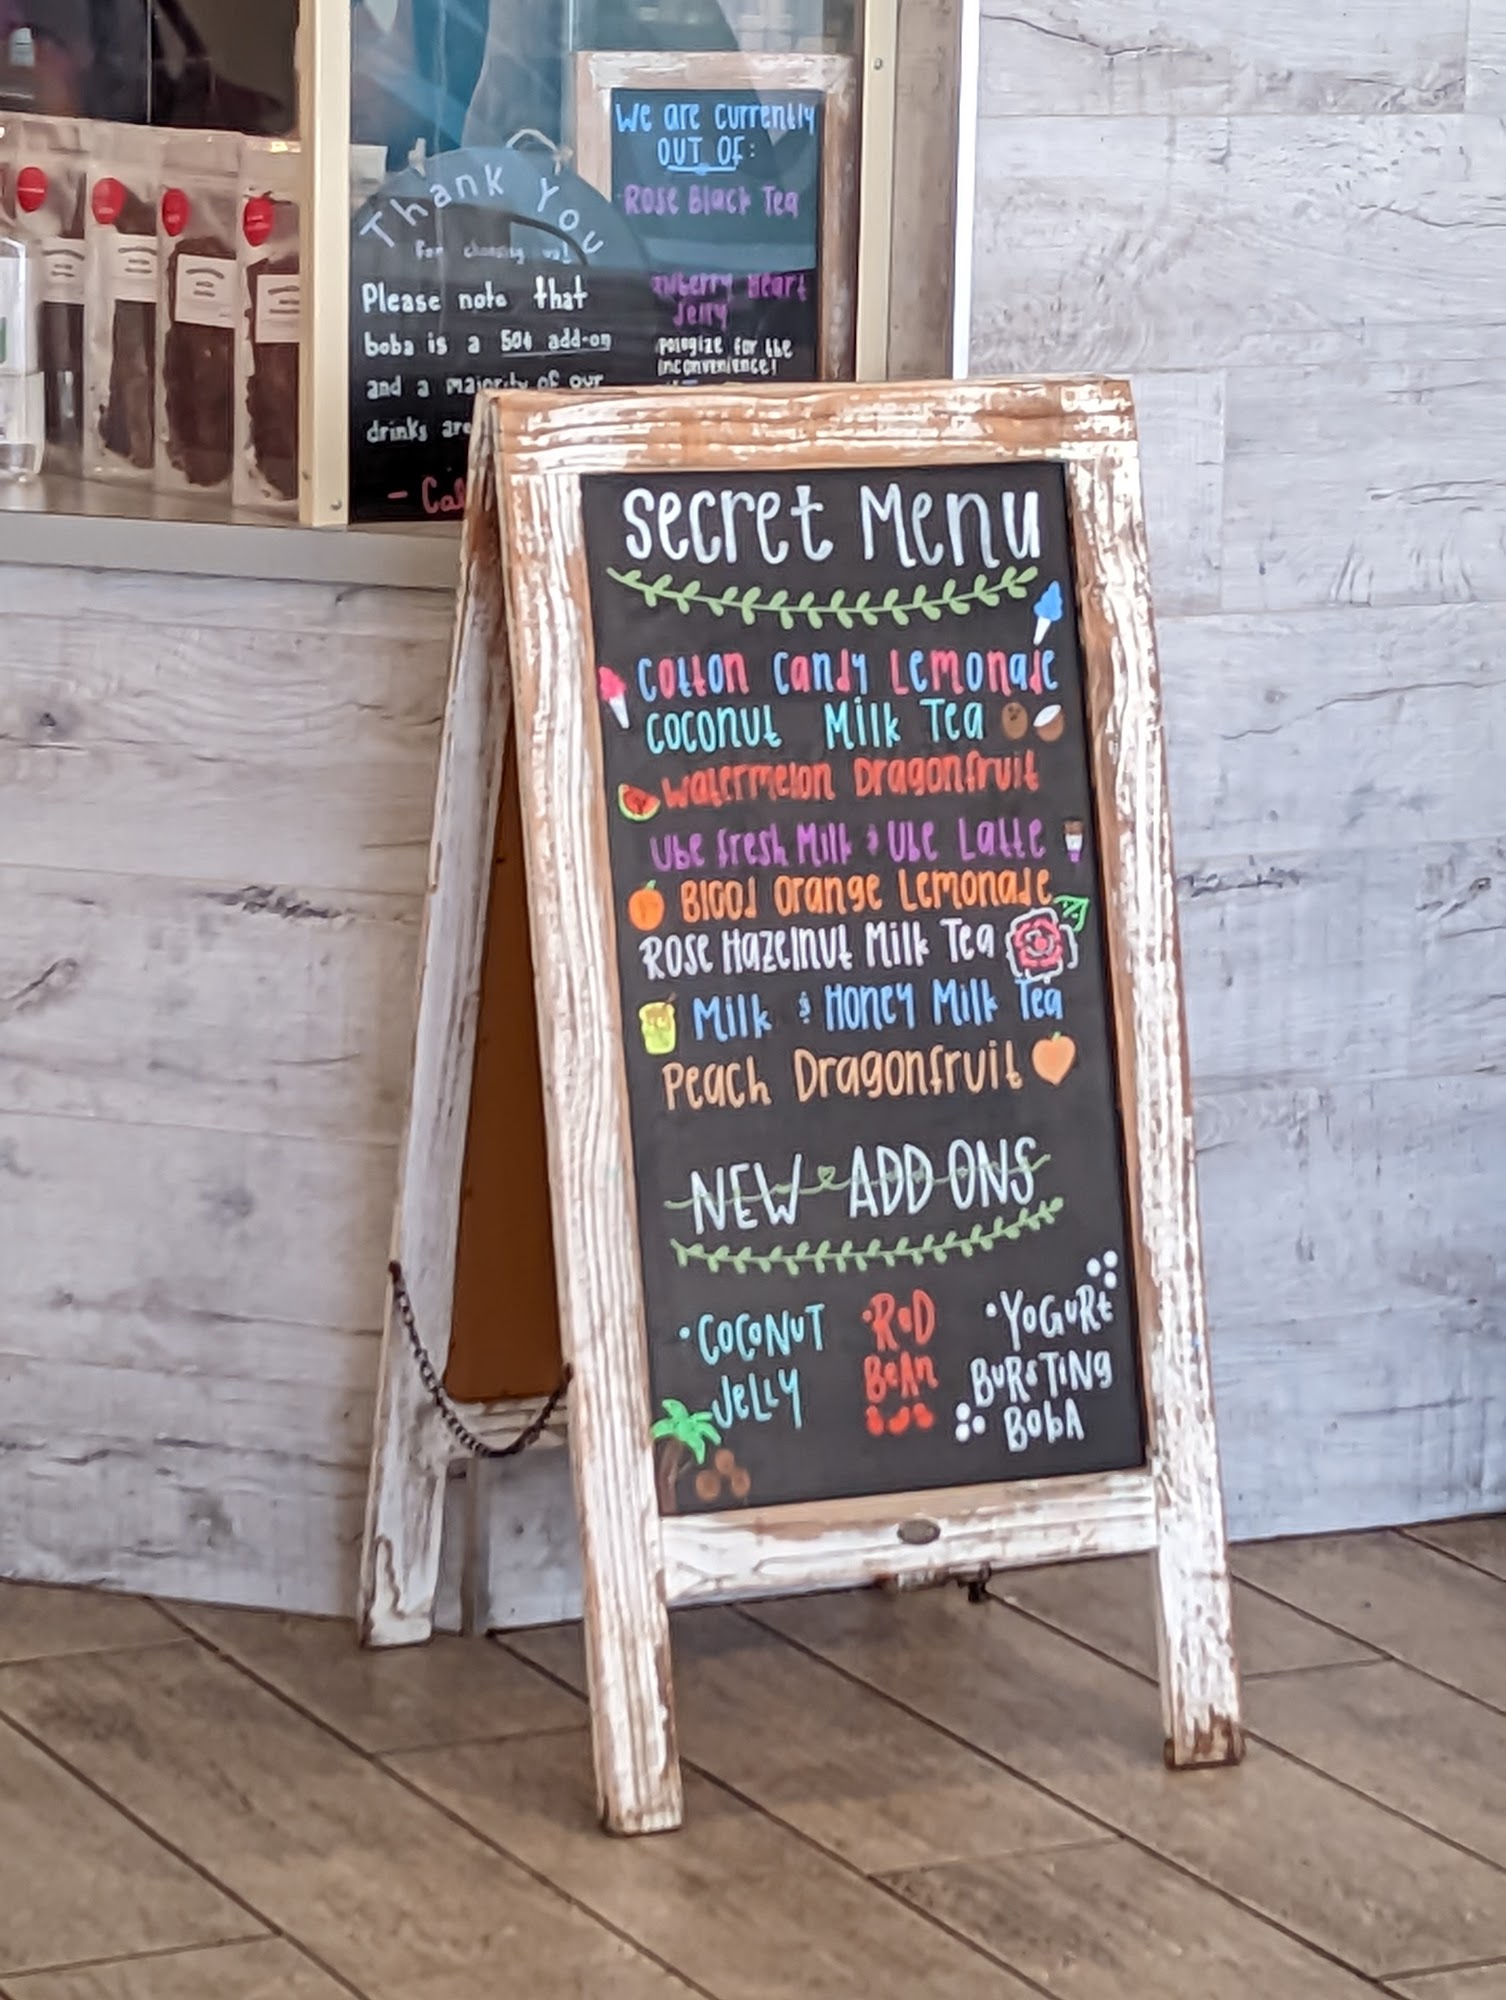 We are currently
OUT OF:
Rose Black Tea
Heart
Jelly
for the
inconvenience!
Thank You
for choosing us!
Please note that
boba is a 50¢ add-on
and a majority of our
drinks are
Secret Menu
Cotton Candy Lemonade
Coconut Milk Tea
Watermelon Dragonfruit
Ube Fresh Milk & Ube Latte
Blood Orange Lemonade
Rose Hazelnut Milk Tea
Milk & Honey Milk Tea
Peach Dragonfruit
NEW ADD ONS
• COCONUT
JELLY
• RED
BEAN
• YOGURT
BURSTING
BOBA